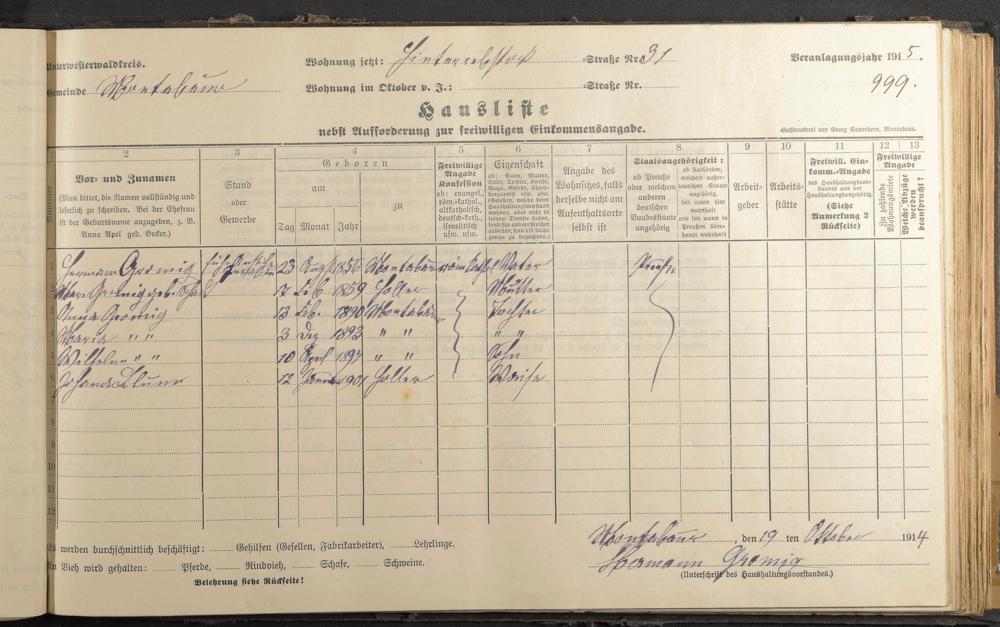 Unterwesterwaldkreis.
Wohnung jetzt: Hinterrebstock Straße Nr. 31
Veranlagungsjahr 1915.
Gemeinde Montabaur
Wohnung im Oktober v. J.: Straße Nr.
999.
Hausliste
nebst Aufforderung zur freiwilligen Einkommensangabe.
Buchdruckerei von Georg Sauerborn, Montabaur.
1 2 3 4 5 6 7 8 9 10 11 12 13
Nummer
Vor- und Zunamen
(Man bittet, die Namen vollständig und
leserlich zu schreiben. Bei der Ehefrau
ist der Geburtsname anzugeben, z. B.
Anna Apel geb. Becker.)
Stand
oder
Gewerbe
Geboren
am
zu
Tag Monat Jahr
Freiwillige
Angabe
Konfession
ob: evangel.,
röm.-kathol.,
altkatholisch,
deutsch-kath.,
israelitisch
usw. usw.
Eigenschaft
Angabe des
Wohnsitzes, falls
derselbe nicht am
Aufenthaltsorte
selbst ist
Staatsangehörigkeit:
ob Preuße
oder welchem
anderen
deutschen
Bundesstaate
angehörig
ob Ausländer,
welchem außer-
deutschen Staat
angehörig,
seit wann hier
wohnhaft
und seit wann in
Preußen über-
haupt wohnhaft
Arbeit-
geber
Arbeits-
stätte
Freiwill. Ein-
komm.-Angabe
des Haushaltungsvor-
standes und der
Haushaltungsangehörig.
(Siehe
Anmerkung 2
Rückseite)
Freiwillige
Angabe
Zu zahlende
Wohnungsmiete
Welche Abzüge
werden
beansprucht?
1 Hermann Gromig 23 August 1856 Montabaur röm. kath. Vater Preuße
2 Marie Gromig geb. 17 Feb. 1859 Holler Mutter
3 Anna Gromig 13 Feb. 1890 Montabaur Tochter
4 Maria " " 3 Dez 1893 " " " "
5 Wilhelm " " 10 April 1897 " " Sohn
6 Johann Blum 12 Januar 1901 Holler Waise
7
8
9
10
11
12
Es werden durchschnittlich beschäftigt: Gehilfen (Gesellen, Fabrikarbeiter), Lehrlinge.
An Vieh wird gehalten: Pferde, Rindvieh, Schafe, Schweine.
Belehrung siehe Rückseite!
Montabaur, den 19 ten Oktober 1914
Hermann Gromig
(Unterschrift des Haushaltungsvorstandes.)